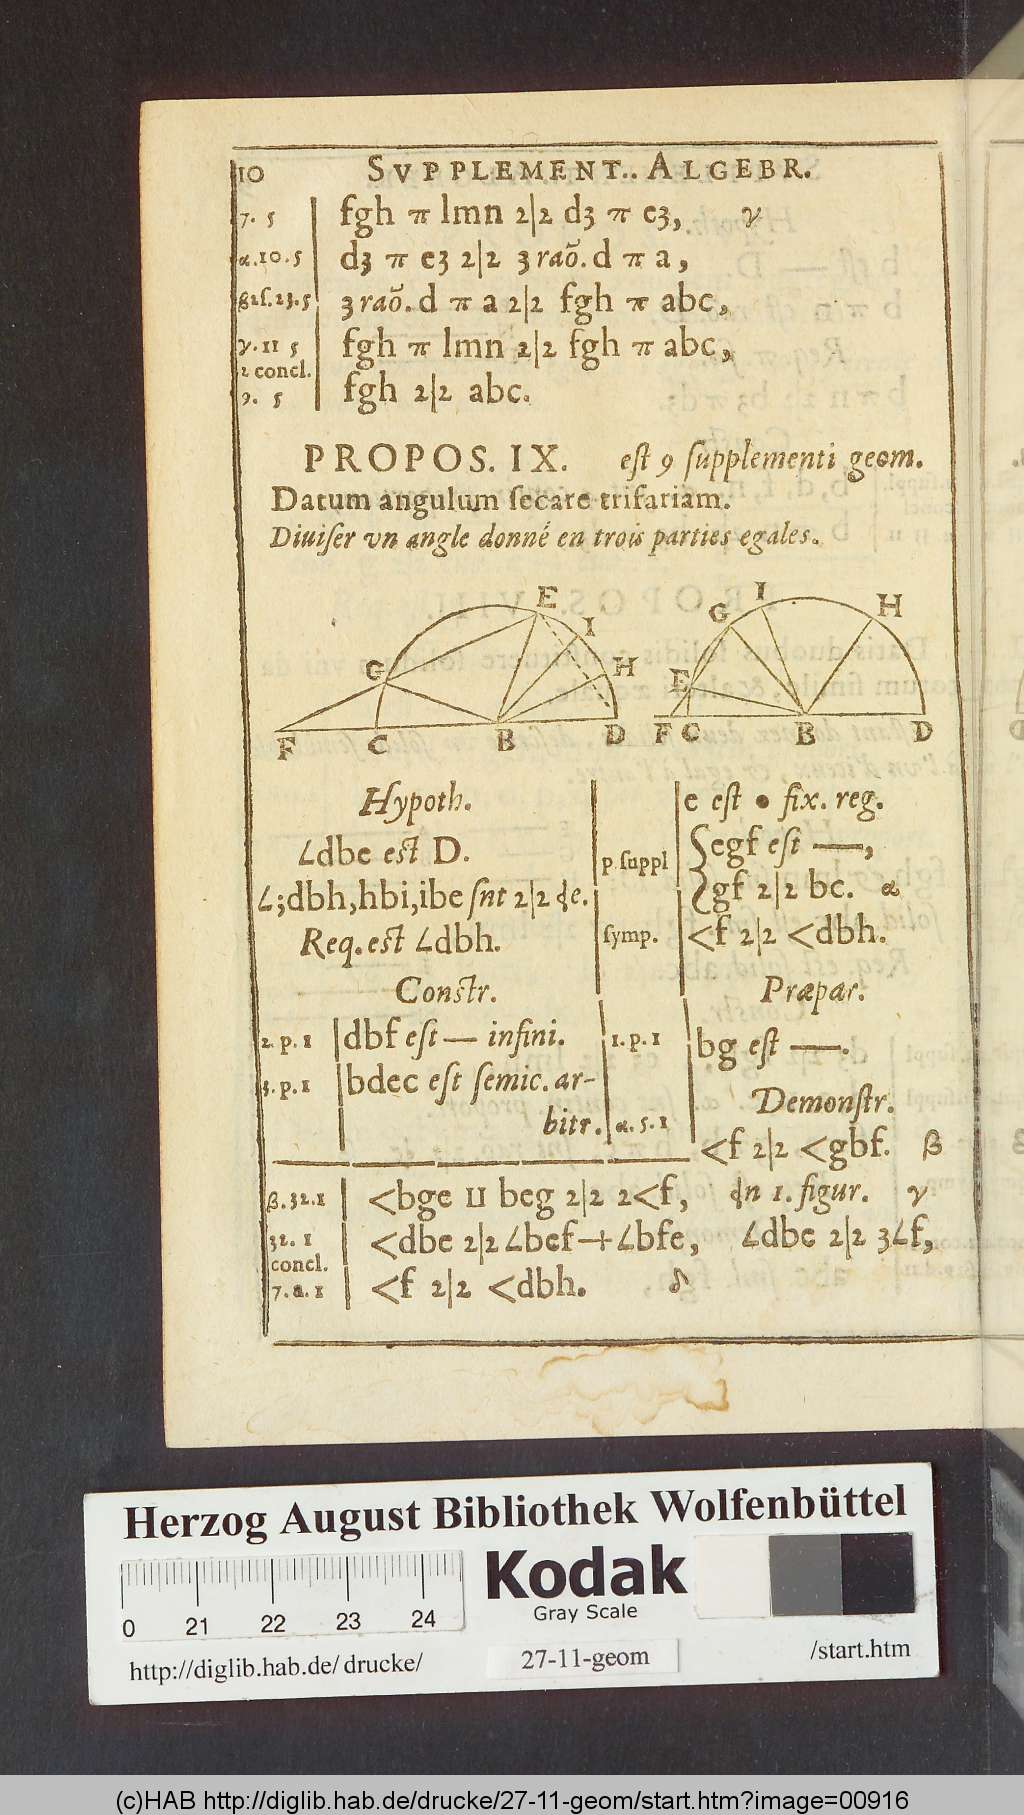 10 SVPPLEMENT.. ALGEBR.
7. 5 fgh π lmn 2|2 dʒ π eʒ, γ
α.10.5 dʒ π eʒ 2|2 3 raõ. d π a,
g2ſ.23.5 3 raõ. d π a 2|2 fgh π abc,
γ. 11 5 fgh π lmn 2|2 fgh π abc,
2 concl.
9. 5 fgh 2|2 abc.
PROPOS. IX. eſt 9 ſupplementi geom.
Datum angulum ſecare trifariam.
Diuiſer vn angle donné en trois parties egales.
E I H G F C B D
G I H E F C B D
Hypoth.
∠dbe eſt D.
∠;dbh,hbi,ibe ſnt 2|2 de.
Req. eſt ∠dbh.
Constr.
2. p. 1 dbf eſt — infini.
3. p. 1 bdec eſt ſemic. ar-
bitr.
p. ſuppl e eſt • fix. reg.
{egf eſt —,
{gf 2|2 bc. α
ſymp. <f 2|2 <dbh.
Præpar.
1. p. 1 bg eſt —.
Demonſtr.
α. 5. 1 <f 2|2 <gbf. β
β. 32.1 <bge II beg 2|2 2<f, dn 1. figur. γ
32. 1 <dbe 2|2 ∠bef+∠bfe, ∠dbe 2|2 3∠f,
concl.
7. a. 1 <f 2|2 <dbh. δ
Herzog August Bibliothek Wolfenbüttel
Kodak
Gray Scale
0 21 22 23 24
http://diglib.hab.de/drucke/ 27-11-geom /start.htm
(c)HAB http://diglib.hab.de/drucke/27-11-geom/start.htm?image=00916